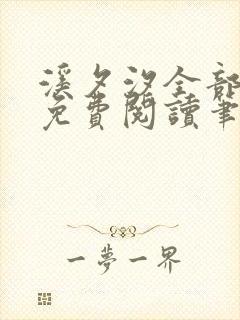 溪夕汐全部
免費閱讀筆
一夢一界